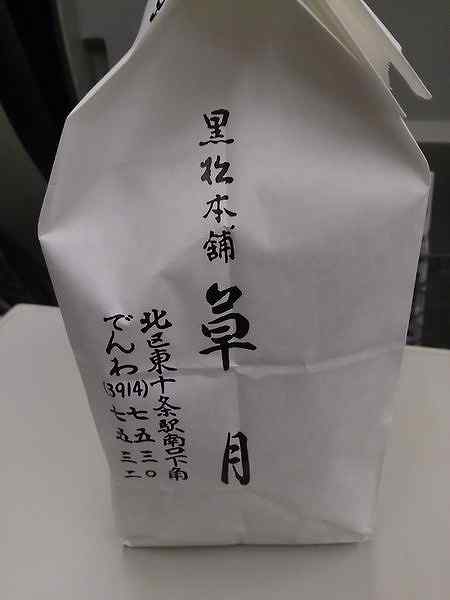 黒松本舗 草月
北区東十条駅南口下角
でんわ(3914)七五三〇
七五三二